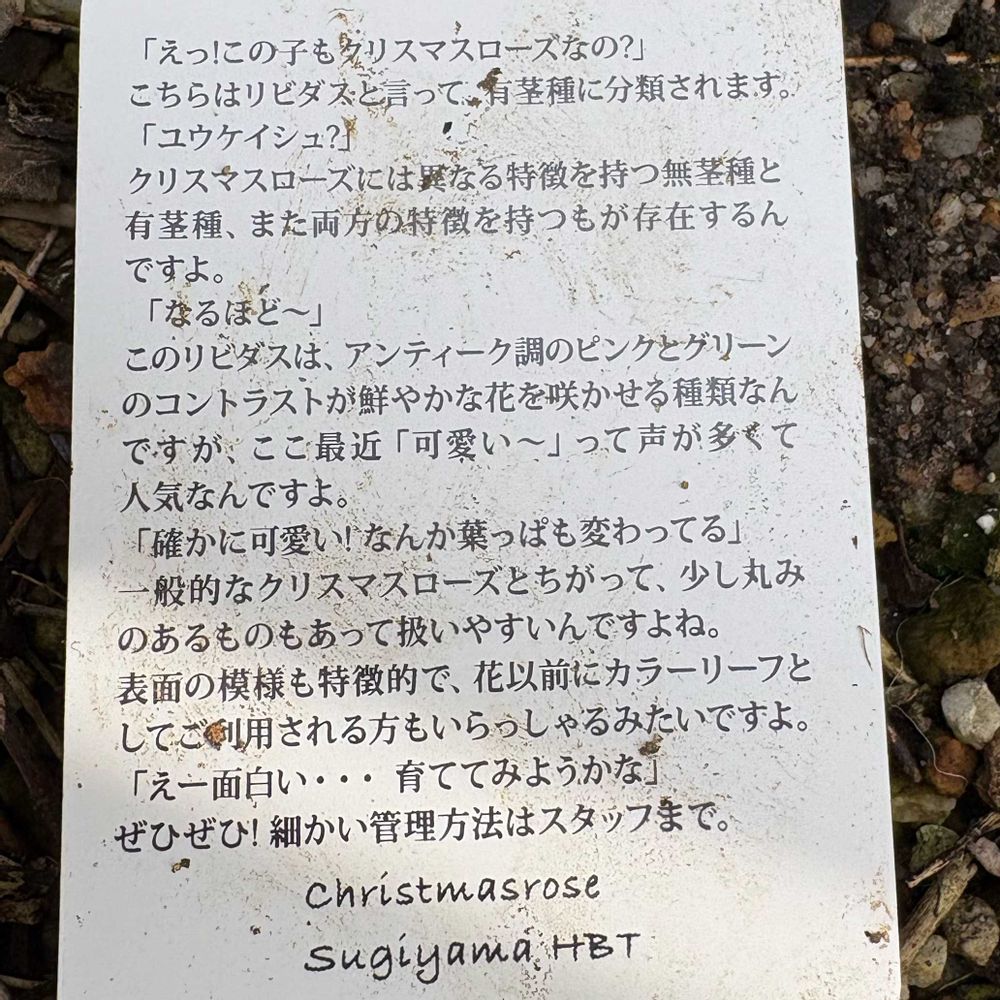 「えっ!この子もクリスマスローズなの?」
こちらはリビダスと言って、有茎種に分類されます。
「ユウケイシュ?」
クリスマスローズには異なる特徴を持つ無茎種と
有茎種、また両方の特徴を持つもが存在するん
ですよ。
「なるほど〜」
このリビダスは、アンティーク調のピンクとグリーン
のコントラストが鮮やかな花を咲かせる種類なん
ですが、ここ最近「可愛い〜」って声が多くて
人気なんですよ。
「確かに可愛い!なんか葉っぱも変わってる」
一般的なクリスマスローズとちがって、少し丸み
のあるものもあって扱いやすいんですよね。
表面の模様も特徴的で、花以前にカラーリーフと
してご利用される方もいらっしゃるみたいですよ。
「えー面白い・・・ 育ててみようかな」
ぜひぜひ!細かい管理方法はスタッフまで。
Christmasrose
Sugiyama HBT